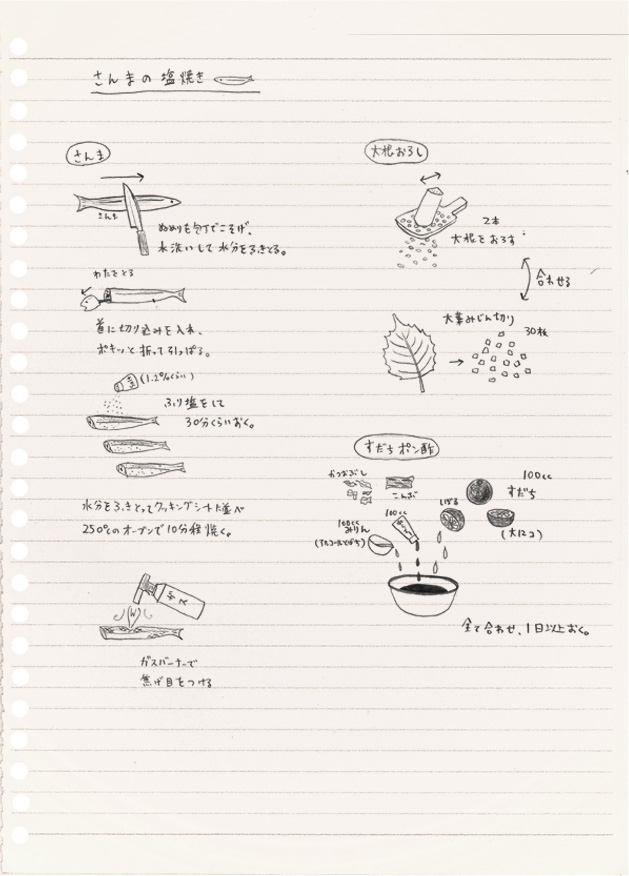 さんまの塩焼き
さんま
さんま
ぬめりを包丁でこそげ、
水洗いして水分をふきとる。
わたをとる
首に切り込みを入れ、
ポキッと折って引っぱる。
(1.2%くらい)
ふり塩をして
30分くらいおく。
水分をふきとってクッキングシートに並べ
250℃のオーブンで10分程焼く。
ガス
ガスバーナーで
焦げ目をつける
大根おろし
2本
大根をおろす
合わせる
大葉みじん切り
30枚
すだちポン酢
かつおぶし
こんぶ
100cc
すだち
しぼる
(大12コ)
100cc
みりん
(アルコールとばす)
100cc
全て合わせ、1日以上おく。